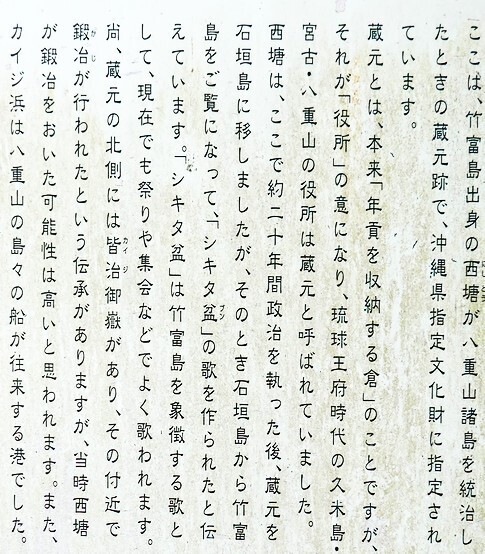 ここは、竹富島出身の西塘が八重山諸島を統治し
たときの蔵元跡で、沖縄県指定文化財に指定され
ています。
蔵元とは、本来「年貢を収納する倉」のことですが、
それが「役所」の意になり、琉球王府時代の久米島・
宮古・八重山の役所は蔵元と呼ばれていました。
西塘は、ここで約二十年間政治を執った後、蔵元を
石垣島に移しましたが、そのとき石垣島から竹富
島をご覧になって、「シキタ盆」の歌を作られたと伝
えています。「シキタ盆」は竹富島を象徴する歌と
して、現在でも祭りや集会などでよく歌われます。
尚、蔵元の北側には皆治御嶽があり、その付近で
鍛冶が行われたという伝承がありますが、当時西塘
が鍛冶をおいた可能性は高いと思われます。また、
カイジ浜は八重山の島々の船が往来する港でした。